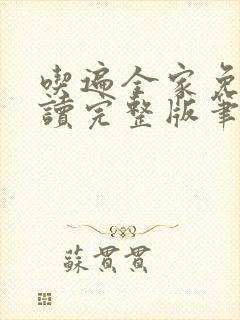 喫遍全家免
讀完整版筆
蘇貫貫